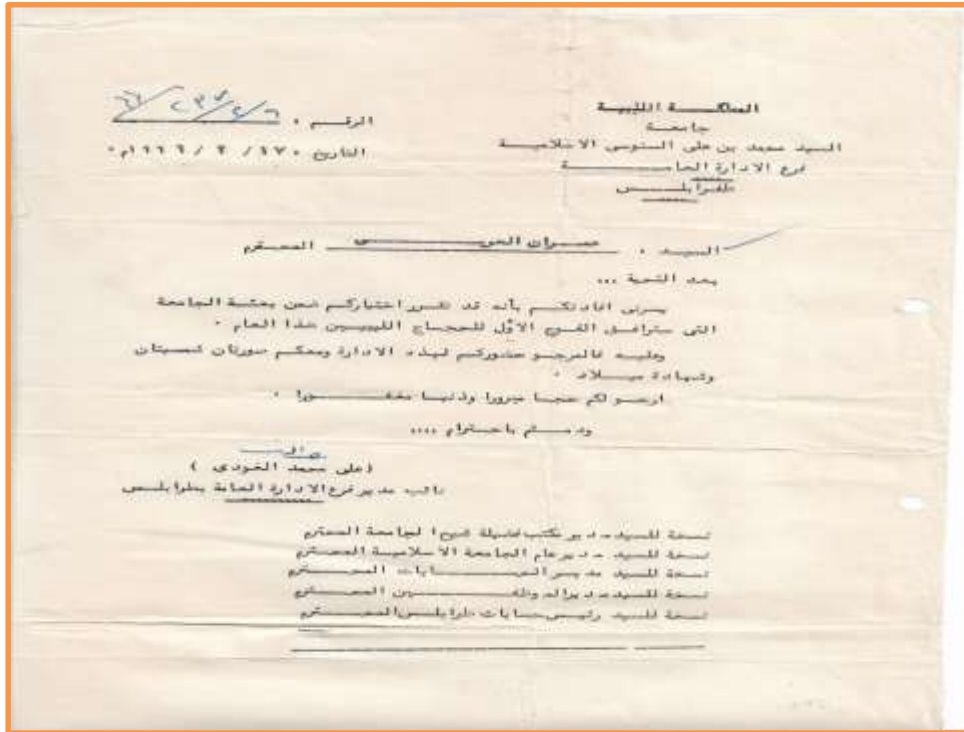 المملكة الليبية
جامعة
السيد محمد بن على السنوسى الاسلامية
فرع الادارة العامة
طرابلس
الرقم :
التاريخ
السيد : المحترم
بعد التحية ...
يسرنى افادتكم بأنه قد تقرر اختياركم ضمن بعثة الجامعة
التى سترافق الفوج الاوّل للحجاج الليبيين هذا العام .
وعليه فالمرجو حضوركم لهذه الادارة ومعكم صورتان شمسيتان
وشهادة ميلاد .
ارجو لكم حجا مبرورا وذنبا مغفورا .
ودمتم باحترام ....
(على محمد )
نائب مدير فرع الادارة العامة بطرابلس
نسخة للسيد مدير مكتب فضيلة شيخ الجامعة المحترم
نسخة للسيد مدير عام الجامعة الاسلامية المحترم
نسخة للسيد مدير الحسابات المحترم
نسخة للسيد مدير الموظفين المحترم
نسخة للسيد رئيس حسابات طرابلس المحترم